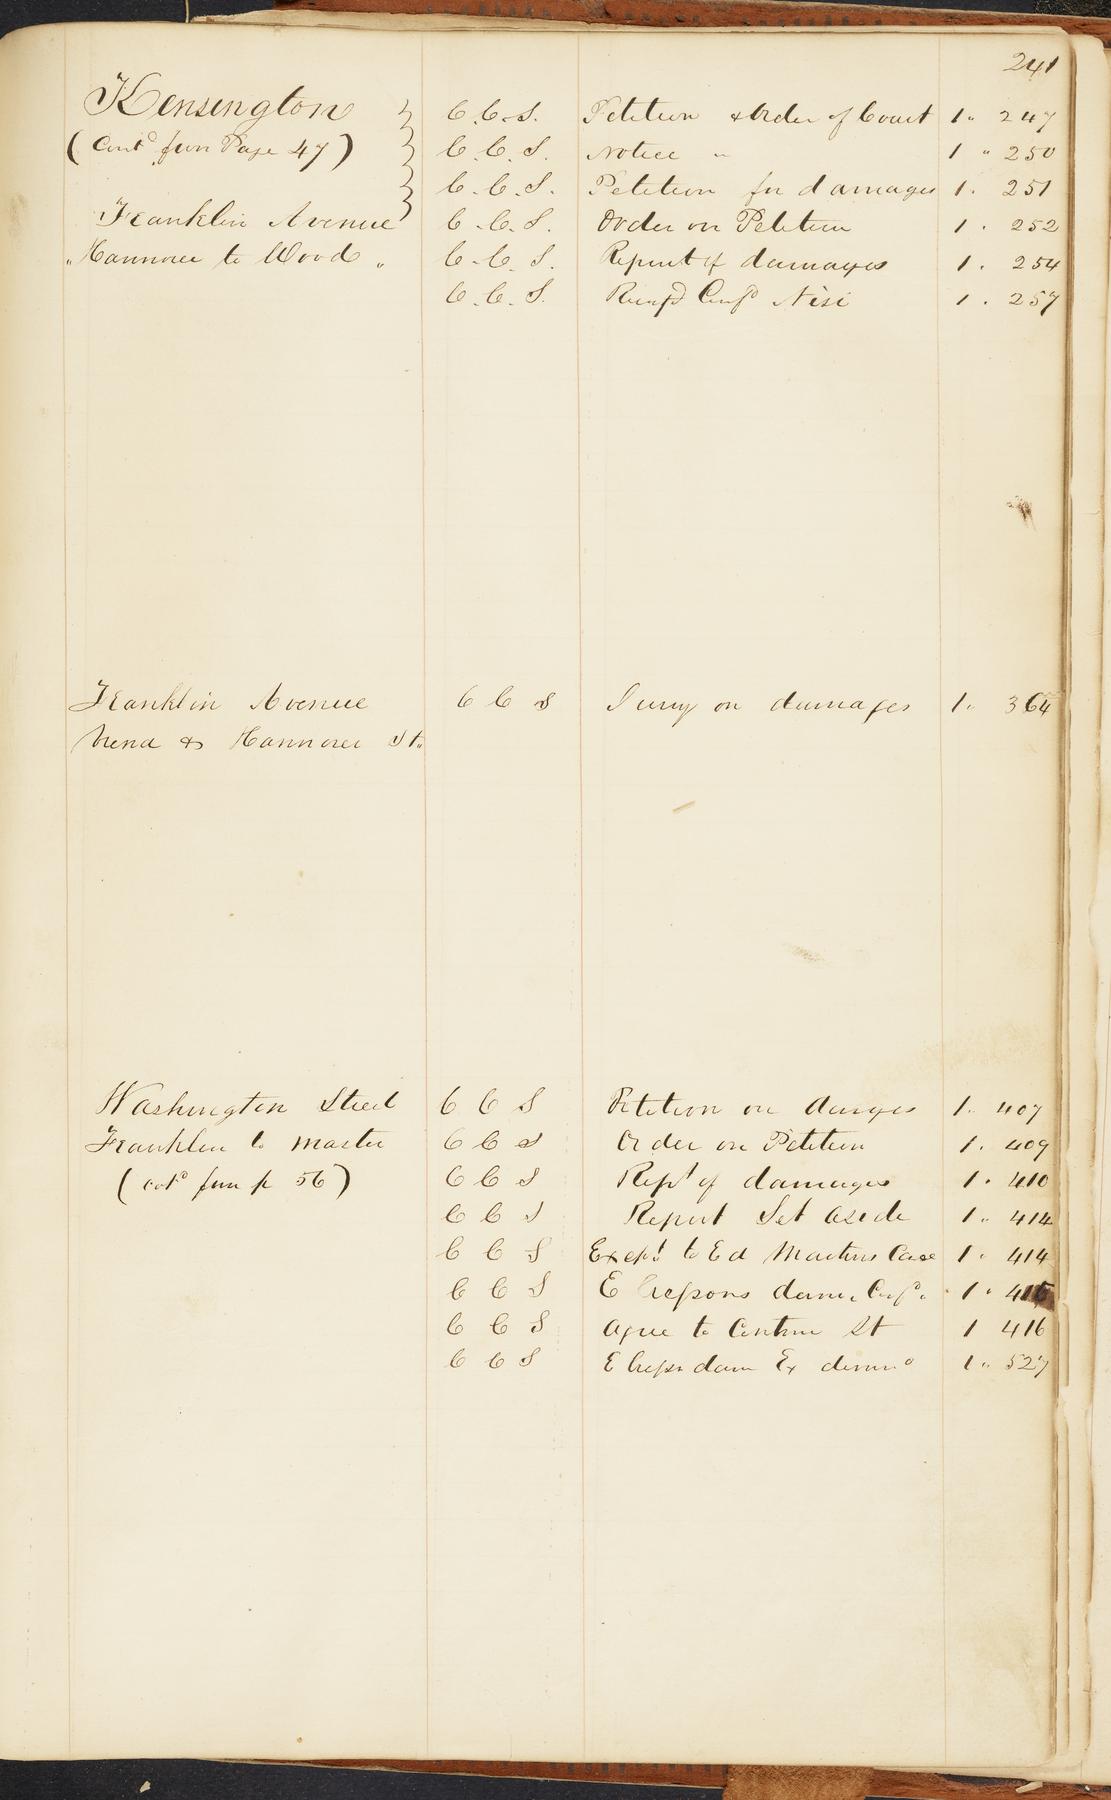 241
Kensington C. C. S. Petition & Order of Court 1. 247
(Contd from Page 47) C. C. S. Notice " 1 " 250
C. C. S. Petition for damages 1. 251
Franklin Avenue C. C. S. Order on Petition 1. 252
"Hannover to Wood" C. C. S. Report of damages 1. 254
C. C. S. Nisi 1. 257
Franklin Avenue C C S Jury on damages 1. 364
& Hannover St. 
Washington Street C C S Petition on damages 1. 407
Franklin to Master C C S Order on Petition 1. 409
(contd from p 56) C C S Rept of damages 1. 410
C C S Report Set aside 1. 414
C C S Except to Ed Martins Case 1. 414
C C S E 1.
C C S Agree to Continu St 1 416
C C S E dam Ex 1. 527